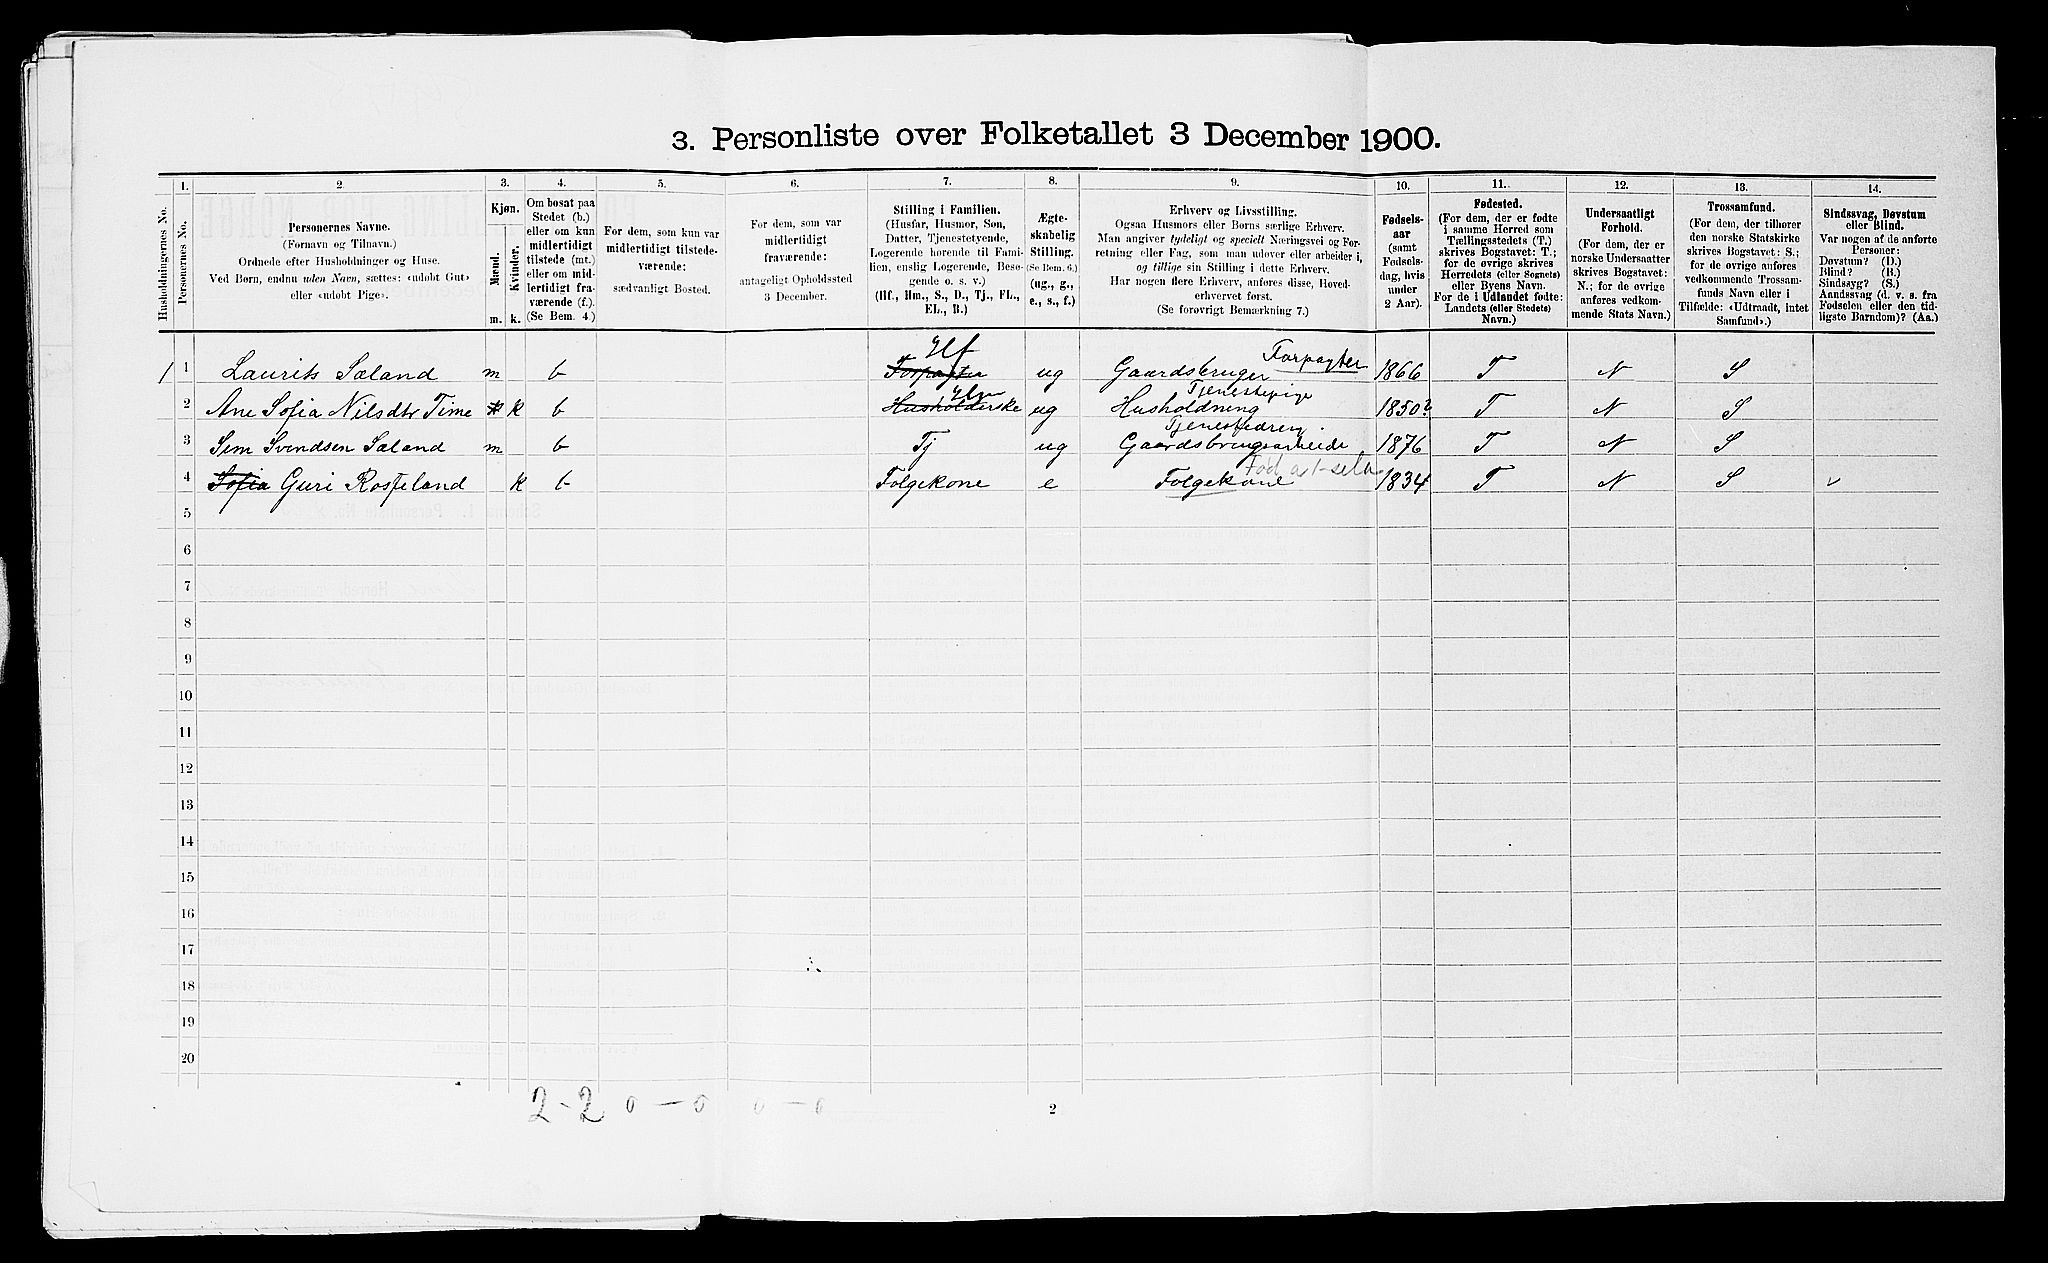 3. Personliste over Folketallet 3 December 1900.
1. 2 3. 4. 5. 6. 7. 8. 9. 10. 11. 12. 13. 14.
Husholdningernes No.
Personernes No.
Personernes Navne.
(Fornavn og Tilnavn.)
Ordnede efter Husholdninger og Huse.
Ved Børn, endnu uden Navn, sættes: «udøbt Gut»
eller «udøbt Pige».
Kjøn.
Mænd.
Kvinder.
m. k.
Om bosat paa
Stedet (b.)
eller om kun
midlertidigt
tilstede (mt.)
eller om mid-
lertidigt fra-
værende (f.).
(Se Bem. 4.)
For dem, som kun var
midlertidigt tilstede-
værende:
sædvanligt Bosted.
For dem, som var
midlertidigt
fraværende:
antageligt Opholdssted
3 December.
Stilling i Familien.
(Husfar, Husmor, Søn,
Datter, Tjenestetyende,
Logerende hørende til Fami-
lien, enslig Logerende, Besø-
gende o. s. v.)
(Hf., Hm., S., D., Tj., FL.,
EL., B.)
Ægte-
skabelig
Stilling.
(Se Bem. 6.)
(ug., g.,
e., s., f.)
Erhverv og Livsstilling.
Ogsaa Husmors eller Børns særlige Erhverv.
Man angiver tydeligt og specielt Næringsvei og For-
retning eller Fag, som man udøver eller arbeider i,
og tillige sin Stilling i dette Erhverv.
Har nogen flere Erhverv, anføres disse, Hoved-
erhvervet først.
(Se forøvrigt Bemærkning 7.)
Fødsels-
aar
(samt
Fødsels-
dag, hvis
under
2 Aar).
Fødested.
(For dem, der er fødte
i samme Herred som
Tællingsstedets (T.)
skrives Bogstavet: T.;
for de øvrige skrives
Herredets (eller Sognets)
eller Byens Navn.
For de i Udlandet fødte:
Landets (eller Stedets)
Navn.)
Undersaatligt
Forhold.
(For dem, der er
norske Undersaatter
skrives Bogstavet:
N.; for de øvrige
anføres vedkom-
mende Stats Navn.)
Trossamfund.
(For dem, der tilhører
den norske Statskirke
skrives Bogstavet: S.;
for de øvrige anføres
vedkommende Trossam-
funds Navn eller i
Tilfælde: «Udtraadt, intet
Samfund».)
Sindssvag, Døvstum
eller Blind.
Var nogen af de anførte
Personer:
Døvstum? (D.)
Blind? (B.)
Sindssyg? (S.)
Aandssvag (d. v. s. fra
Fødselen eller den tid-
ligste Barndom)? (Aa.)
Hf
1 1 Laurits Sæland m b Forpagter ug Gaardsbruger Forpagter 1866 T N S
Tjenestepige
2 Ane Sofia Nilsdtr Time k b Husholderske ug Husholdning 1850? T N S
Tjenestedreng
3 Sem Svendsen Sæland m b Tj ug Gaardsbrugsarbeide 1876 T N S
4 Sofia Guri Rosseland k b Folgekone e Folgekone 1834 T N S v
5
6
7
8
9
10
11
12
13
14
15
16
17
18
19
20
2-2 0-0 0-0
2